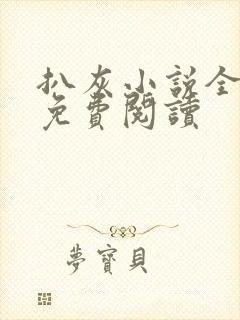 扒灰小説全
免費閱讀
夢寶貝